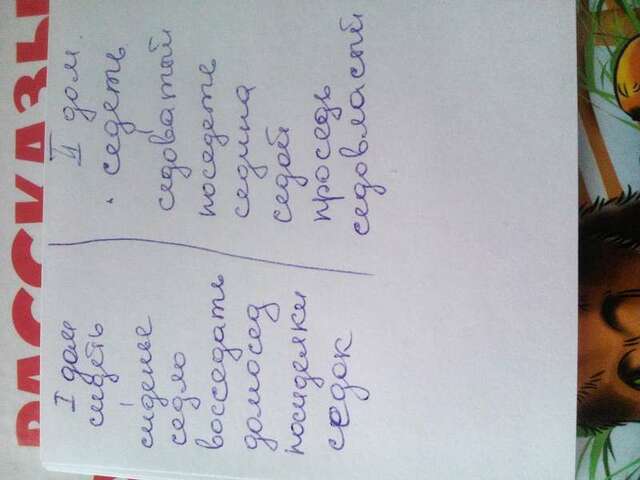 РАССКАЗЫ
I дом
сидеть
сиденье
седло
восседать
домосед
посиделки
седок
II дом.
седеть
седоватый
поседеть
седина
седой
проседь
седовласый